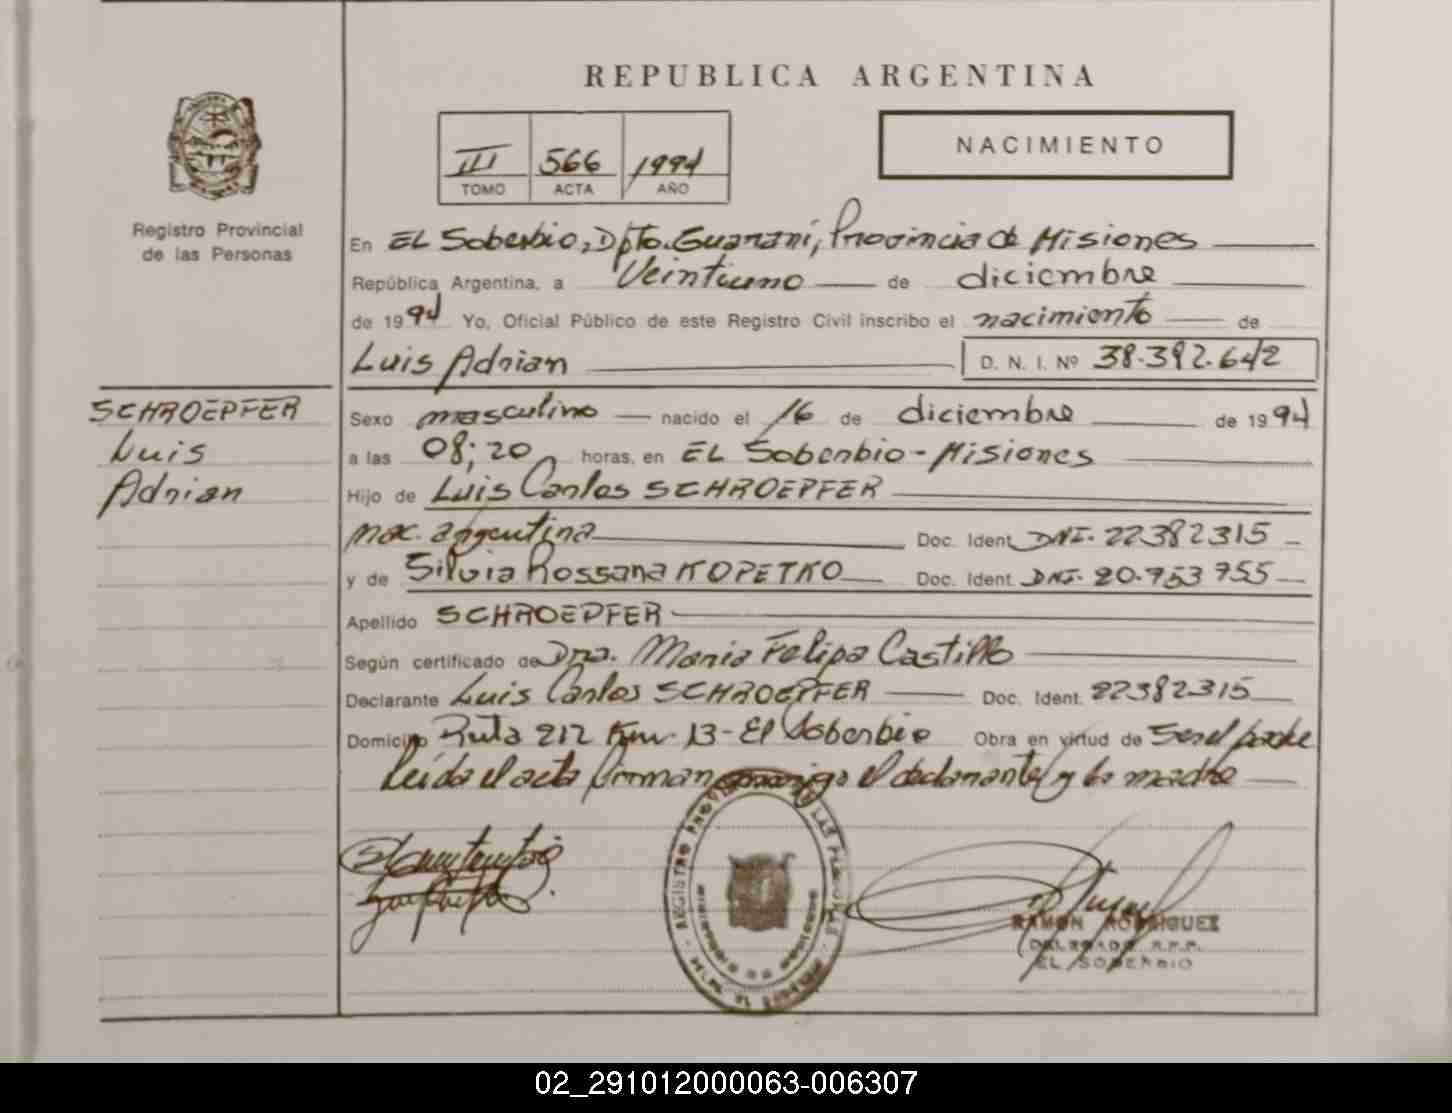 REPUBLICA ARGENTINA
III 566 1994
TOMO ACTA AÑO
NACIMIENTO
Registro Provincial
de las Personas
SCHROEPFER
Luis
Adrian
En EL Soberbio, Dpto. Guaraní, Provincia de Misiones
República Argentina, a Veintiuno de diciembre
de 1994 Yo, Oficial Público de este Registro Civil inscribo el nacimiento de
Luis Adrian D. N. I. Nº 38.392.642
Sexo masculino nacido el 16 de diciembre de 1994
a las 08;20 horas, en EL Soberbio - Misiones
Hijo de Luis Carlos SCHROEPFER
nac. argentina Doc. Ident. DNI. 22382315
y de Silvia Rossana KOPETKO Doc. Ident. DNI. 20.953 955
Apellido SCHROEPFER
Según certificado de Dra. Maria Felipa Castillo
Declarante Luis Carlos SCHROEPFER Doc. Ident. 22382315
Domicilio Ruta 212 Km. 13 - El Soberbio Obra en virtud de Ser el padre
Leída el acta firman conmigo el declarante y la madre
REGISTRO PROVINCIAL DE LAS PERSONAS
RAMON RODRIGUEZ
DELEGADO R.P.P.
EL SOBERBIO
02_291012000063-006307